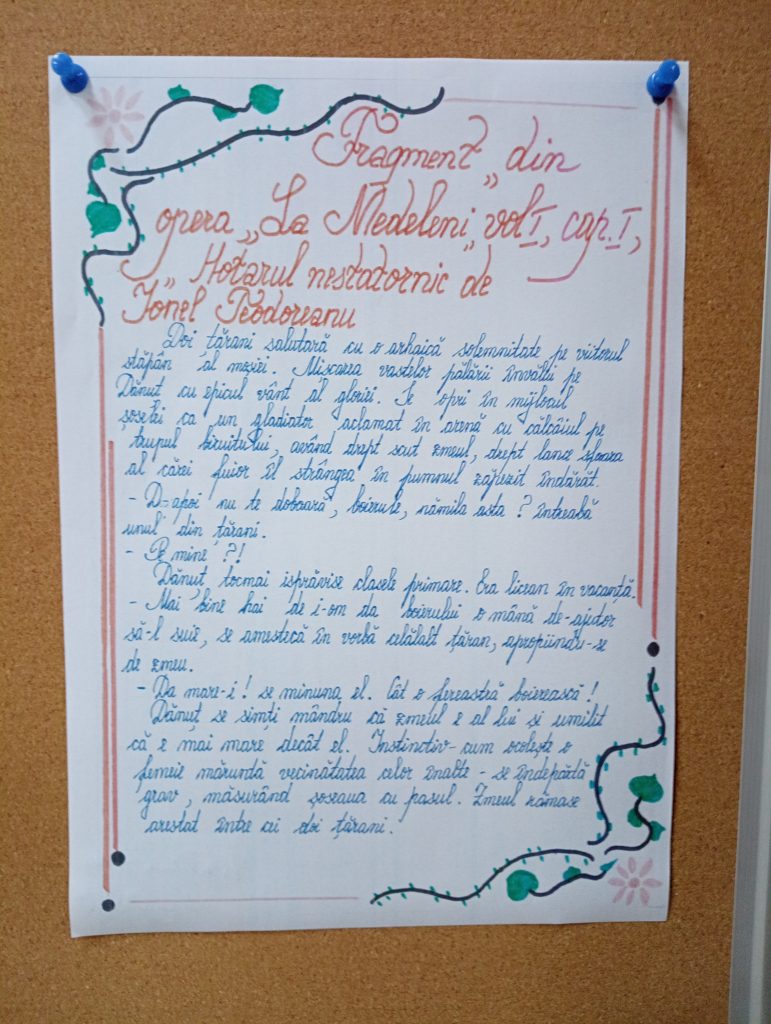 Fragment din
opera „La Medeleni” vol I, cap. I,
„Hotarul nestatornic de
Ionel Teodoreanu
Doi țărani salutară cu o arhaică solemnitate pe viitorul
stăpân al moșiei. Mișcarea vastelor pălării învălii pe
Dănuț cu epicul vânt al gloriei. Se opri în mijlocul
șoselei ca un gladiator aclamat în arenă cu călcâiul pe
trupul biruitului, având drept scut zmeul, drept lance sfoara
al cărei fuior îl strângea în pumnul zăpezit îndărăt.
- D-apoi nu te doboară, boierule, nămila asta? întreabă
unul din țărani.
- Pe mine ?!
Dănuț tocmai isprăvise clasele primare. Era licean în vacanță.
- Mai bine hai de i-om da boierului o mână de-ajutor
să-l suie, se amestecă în vorbă celălalt țăran, apropiindu-se
de zmeu.
- Da mare-i! se minuna el. Cât o fereastră boierească!
Dănuț se simți mândru că zmeul e al lui și umilit
că e mai mare decât el. Instinctiv- cum ocolește o
femeie măruntă vecinătatea celor înalte - se îndepărtă
grav, măsurând șoseaua cu pasul. Zmeul rămase
arestat între cei doi țărani.